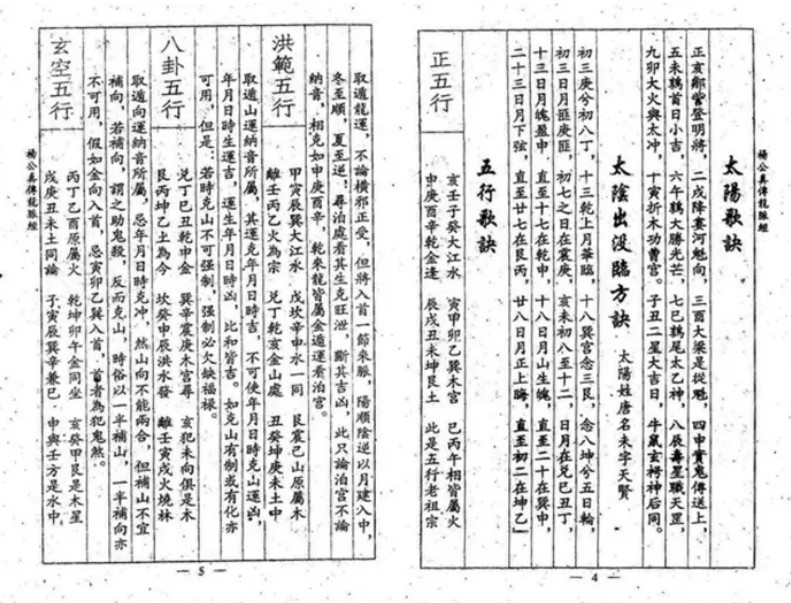 楊公真傳龍脈經
太陽歌訣
正亥鄒訾登明將，二戌降婁河魁向，三酉大梁是從魁，四申傳送上，
五未鶉首日小吉，六午鶉大勝光芒，七巳鶉尾太乙神，八辰壽星職天罡，
九卯大火與太冲，十寅折木功曹宮。子丑二星大吉日，牛鼠玄枵神后同。
太陰出没臨方訣 太陽姓唐名朱字天賢
初三庚兮初八丁，十三乾上月華臨，十八巽宮念三艮，念八坤兮五日輪，
初三日月匪庚匪，初七之日在震庚，亥未初八至十二，日月在兌巳丑丁，
十三日月魄盈申，直至十七在乾申，十八日月山生魄，直至二十在巽申，
二十三日月下弦，直至廿七在艮丙，廿八日月正上晦，直至初二在坤乙」
五行歌訣
正五行
亥壬子癸大江水 寅甲卯乙巽木宮 巳丙午相皆屬火
申庚酉辛乾金逢 辰戌丑未坤艮土 此是五行老祖宗
— 4 —
取遁龍運，不論橫邪正受，但將入首一節來脈，陽順陰逆以月建入中，
冬至順，夏至逆；尋治處看其生克旺泄，斷其吉凶，此只論治宮不論
納音，相克如申庚酉辛，乾來龍皆屬金遁運看治宮。
洪範五行
甲寅辰巽大江水 戊坎辛申水一同 艮震己山原屬木
離壬丙乙火為宗 兌丁乾亥金山處 丑癸坤庚未土中
取遁山運納音所屬，其運克年月日時吉，不可使年月日時克山運凶，
年月日時生運吉，運生年月日時凶，比和皆吉。如克山有制或有化亦
可用，但是：若時克山不可強制，強制必欠缺福祿。
八卦五行
兌丁巳丑乾申金 巽辛震庚木宮尋 亥犯未向俱是木
艮丙坤乙土為今 坎癸申辰洪水發 離壬寅戌火燒林
取遁向運納音所屬，忌年月日時克冲，然山向不能兩合，但補山不宜
補向，若補向，謂之助鬼殺，反而克山，時俗以一半補山，一半補向亦
不可用，假如金向入首，忌寅卯乙巽入首，首者為犯鬼煞。
玄空五行
丙丁乙酉原屬火 乾坤卯午金同坐 亥癸甲艮是木星
戌庚丑未土同論 子寅辰巽辛兼巳 申與壬方是水中
楊公真傳龍脈經
— 5 —